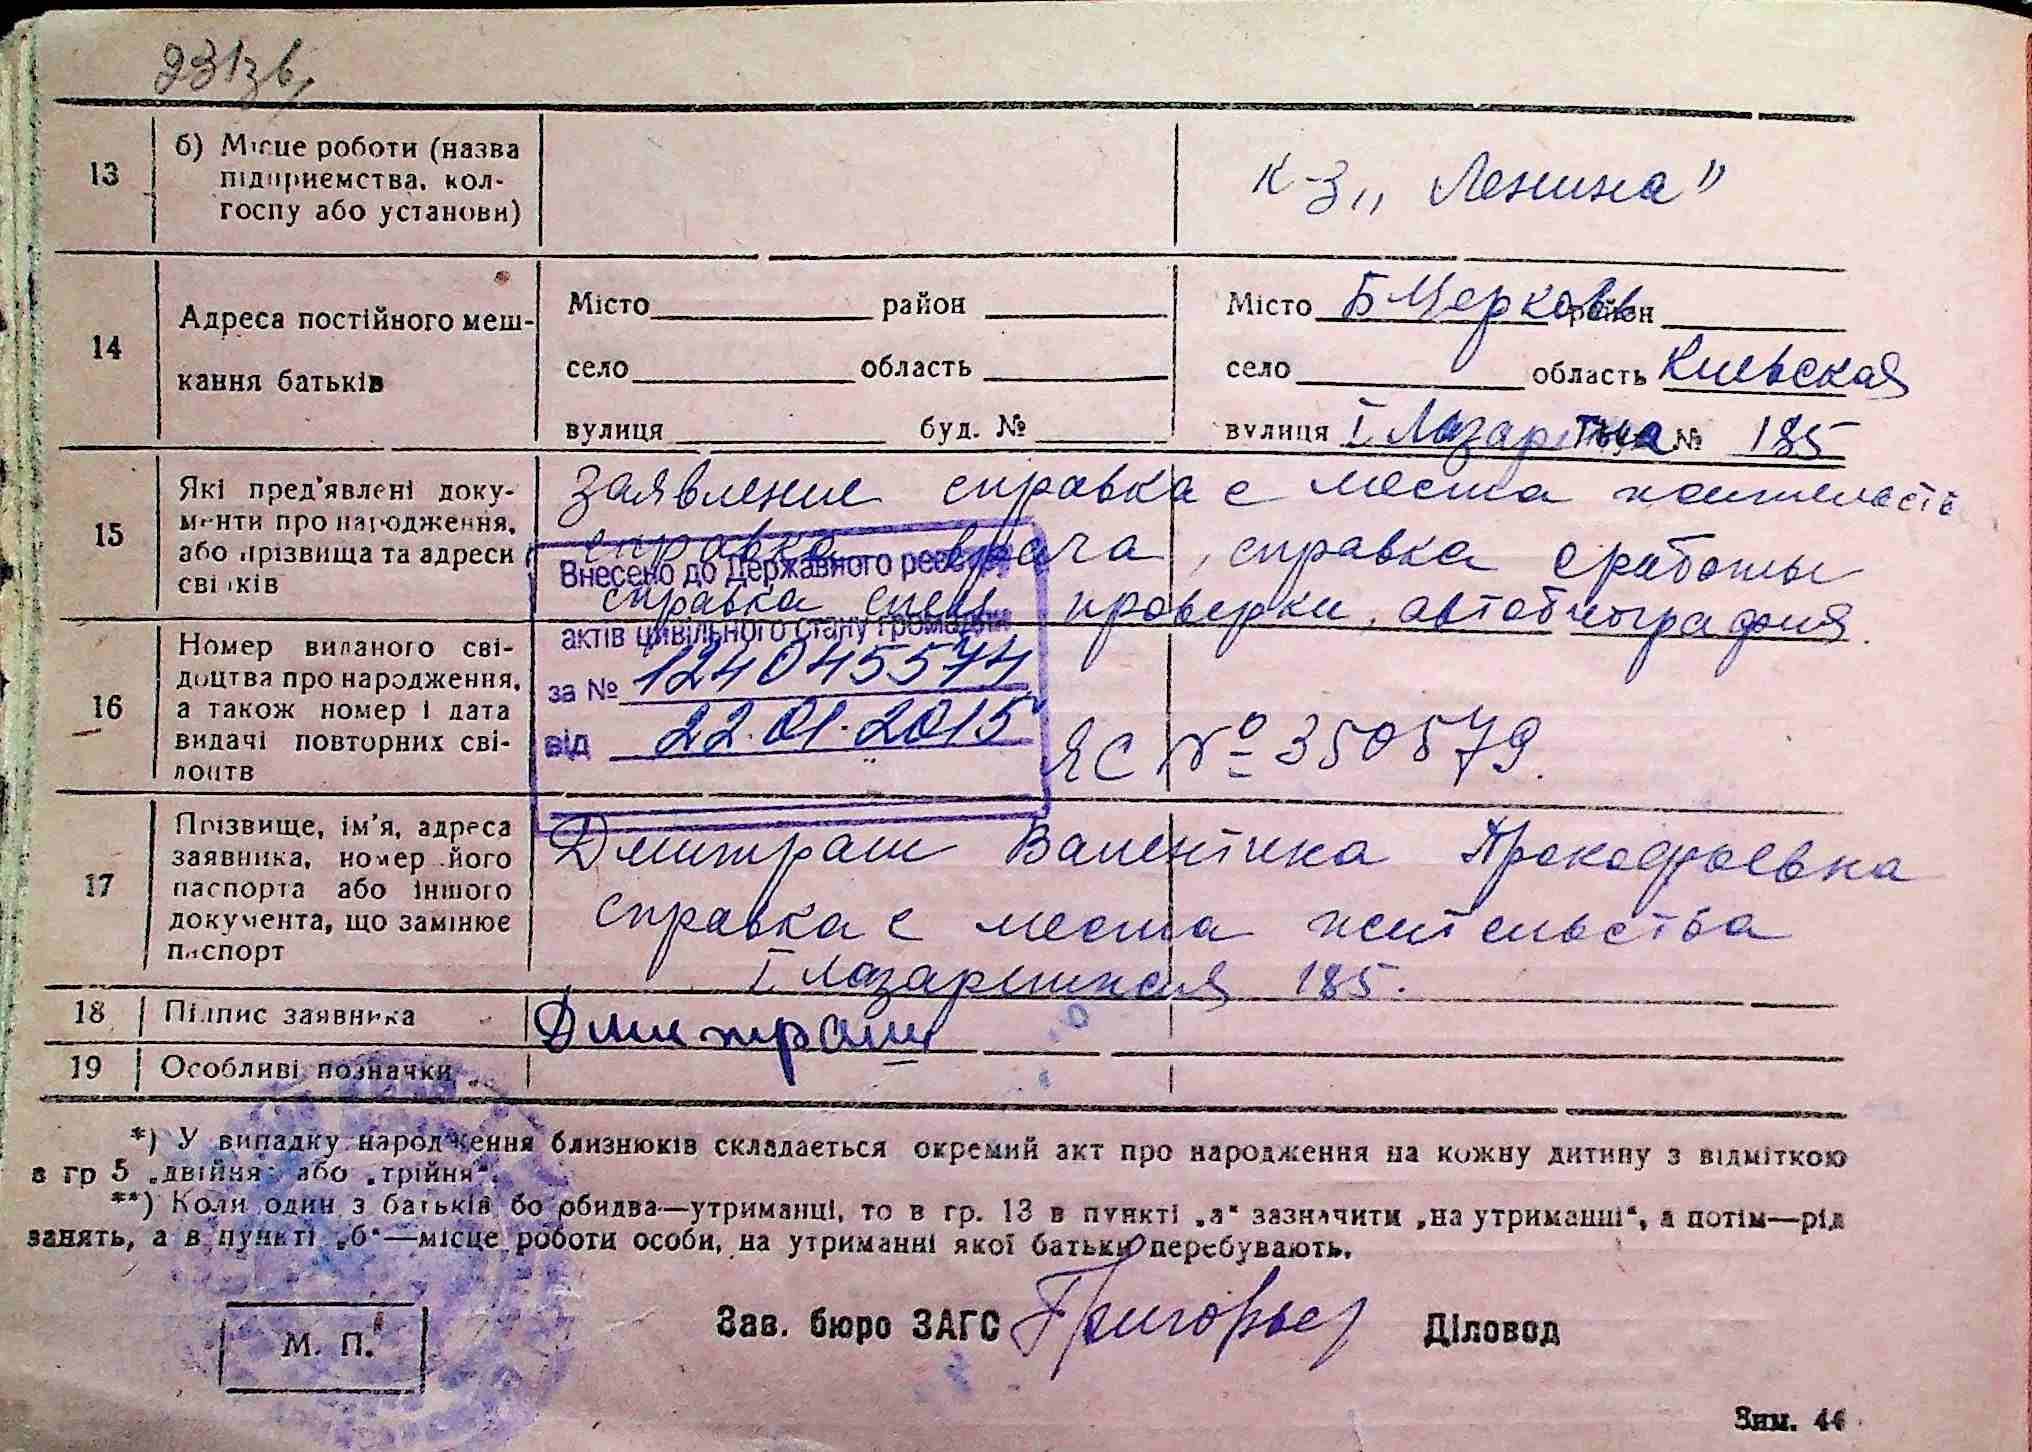 13
б) Місце роботи (назва
підприємства, кол-
госпу або установи)
к-з „Ленина"
14
Адреса постійного меш-
кання батьків
Місто район
село область
вулиця буд. №
Місто Б Церковь район
село область Киевская
вулиця І Лазаретная № 185
15
Які пред'явлені доку-
менти про народження,
або прізвища та адреси
свідків
заявление справка с места жительств
справка врача, справка с работы
справка спец проверки, автобиография.
Внесено до Державного реєстру
актів цивільного стану громадян
за № 124045574
від 22.01.2015
16
Номер виданого сві-
доцтва про народження,
а також номер і дата
видачі повторних сві-
доцтв
ЯС № 350579.
17
Прізвище, ім'я, адреса
заявника, номер його
паспорта або іншого
документа, що замінює
паспорт
Дмитраш Валентина Прокофьевна
справка с места жительства
І Лазаретная 185.
18
Підпис заявника
Дмитраш
19
Особливі позначки
*) У випадку народження близнюків складається окремий акт про народження на кожну дитину з відміткою
в гр 5 „двійня" або „трійня".
**) Коли один з батьків бо обидва—утриманці, то в гр. 13 в пункті „а" зазначити „на утриманні", а потім—рід
занять, а в пункті „б"—місце роботи особи, на утриманні якої батьки перебувають.
Зав. бюро ЗАГС Діловод
М. П.
Зим. 44